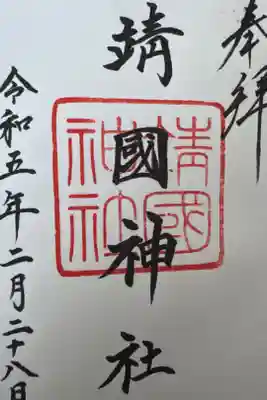 奉拝
靖國神社
靖國神社
令和五年二月二十八日